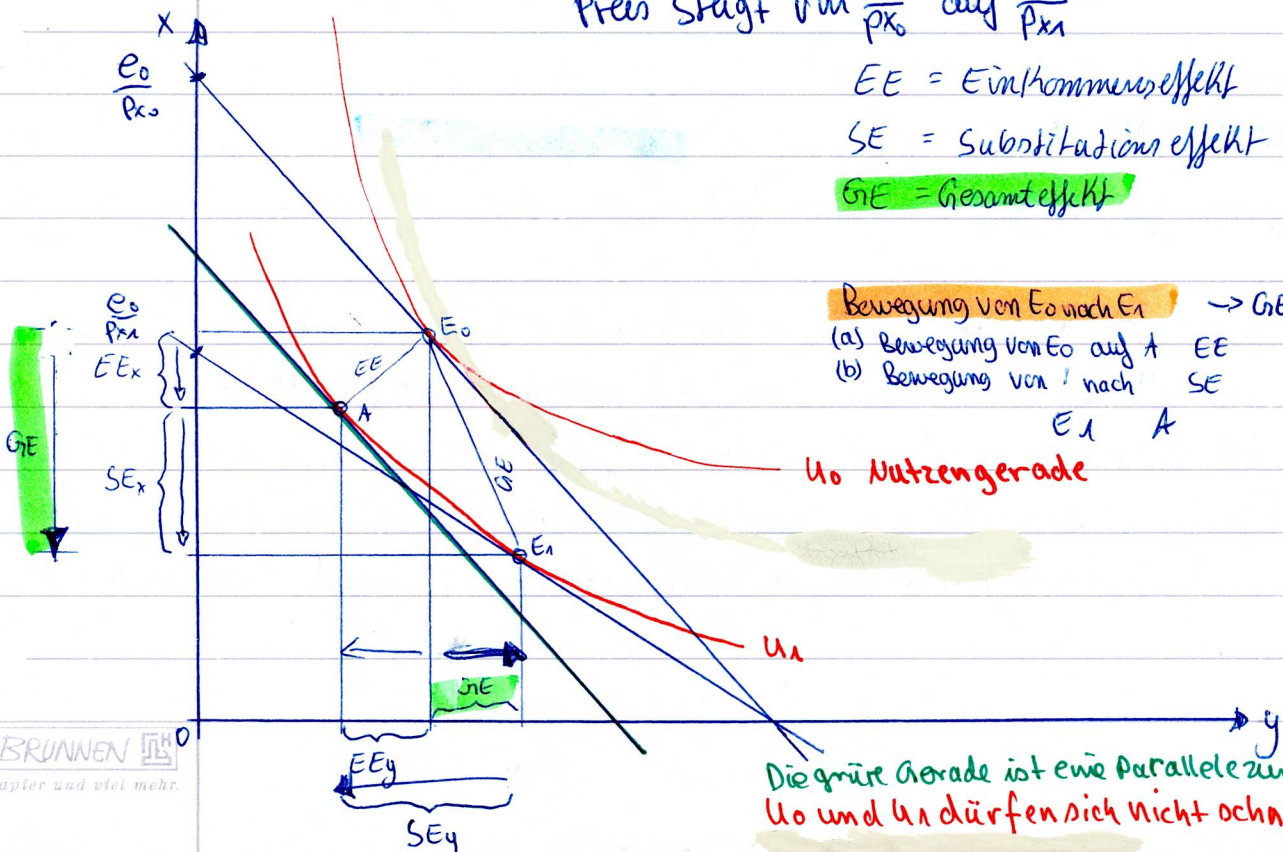 Preis steigt von px₀ auf px₁
X
e₀
px₀
EE = Einkommenseffekt
SE = Substitutionseffekt
GE = Gesamteffekt
Bewegung von E₀ nach E₁ → GE
(a) Bewegung von E₀ auf A EE
(b) Bewegung von nach SE
E₁ A
e₀
px₁
EEx
GE
SEx
E₀
EE
A
GE
E₁
U₀ Nutzengerade
U₁
GE
0
y
EEy
SEy
BRUNNEN
apier und viel mehr.
Die grüne Gerade ist eine Parallele zur
U₀ und U₁ dürfen sich nicht schn